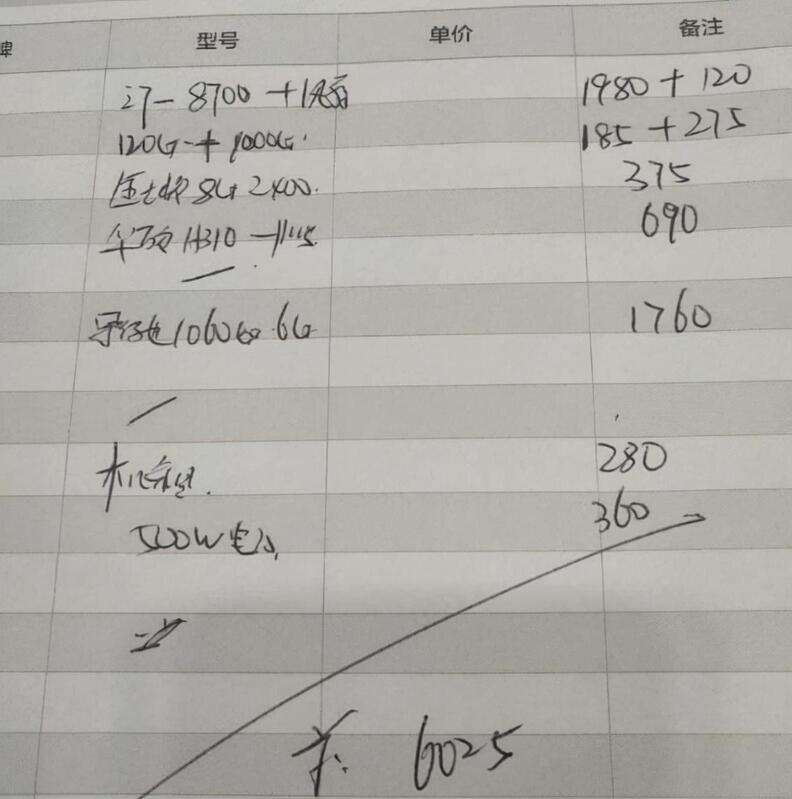 牌 型号 单价 备注
i7-8700+风扇 1980+120
120G+1000G. 185+275
金士顿 8G 2400. 375
华硕 H310-plus 690
1060 6G 1760
机箱 280
500W电源 360
共: 6025